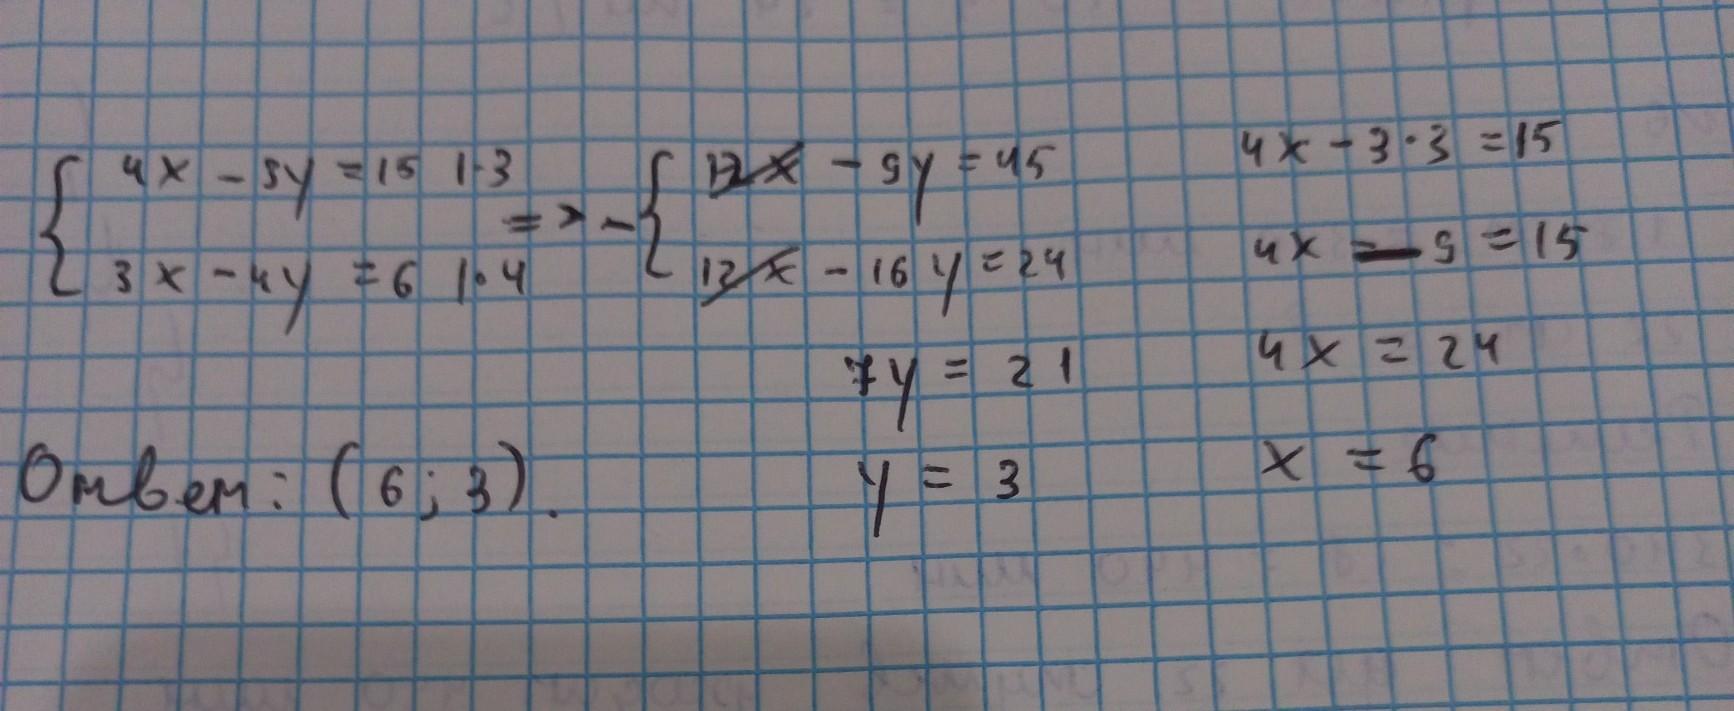 4x - 3y = 15 | · 3
3x - 4y = 6 | · 4
=> -
12x - 9y = 45
12x - 16y = 24
7y = 21
y = 3
4x - 3 · 3 = 15
4x - 9 = 15
4x = 24
x = 6
Ответ: (6; 3).